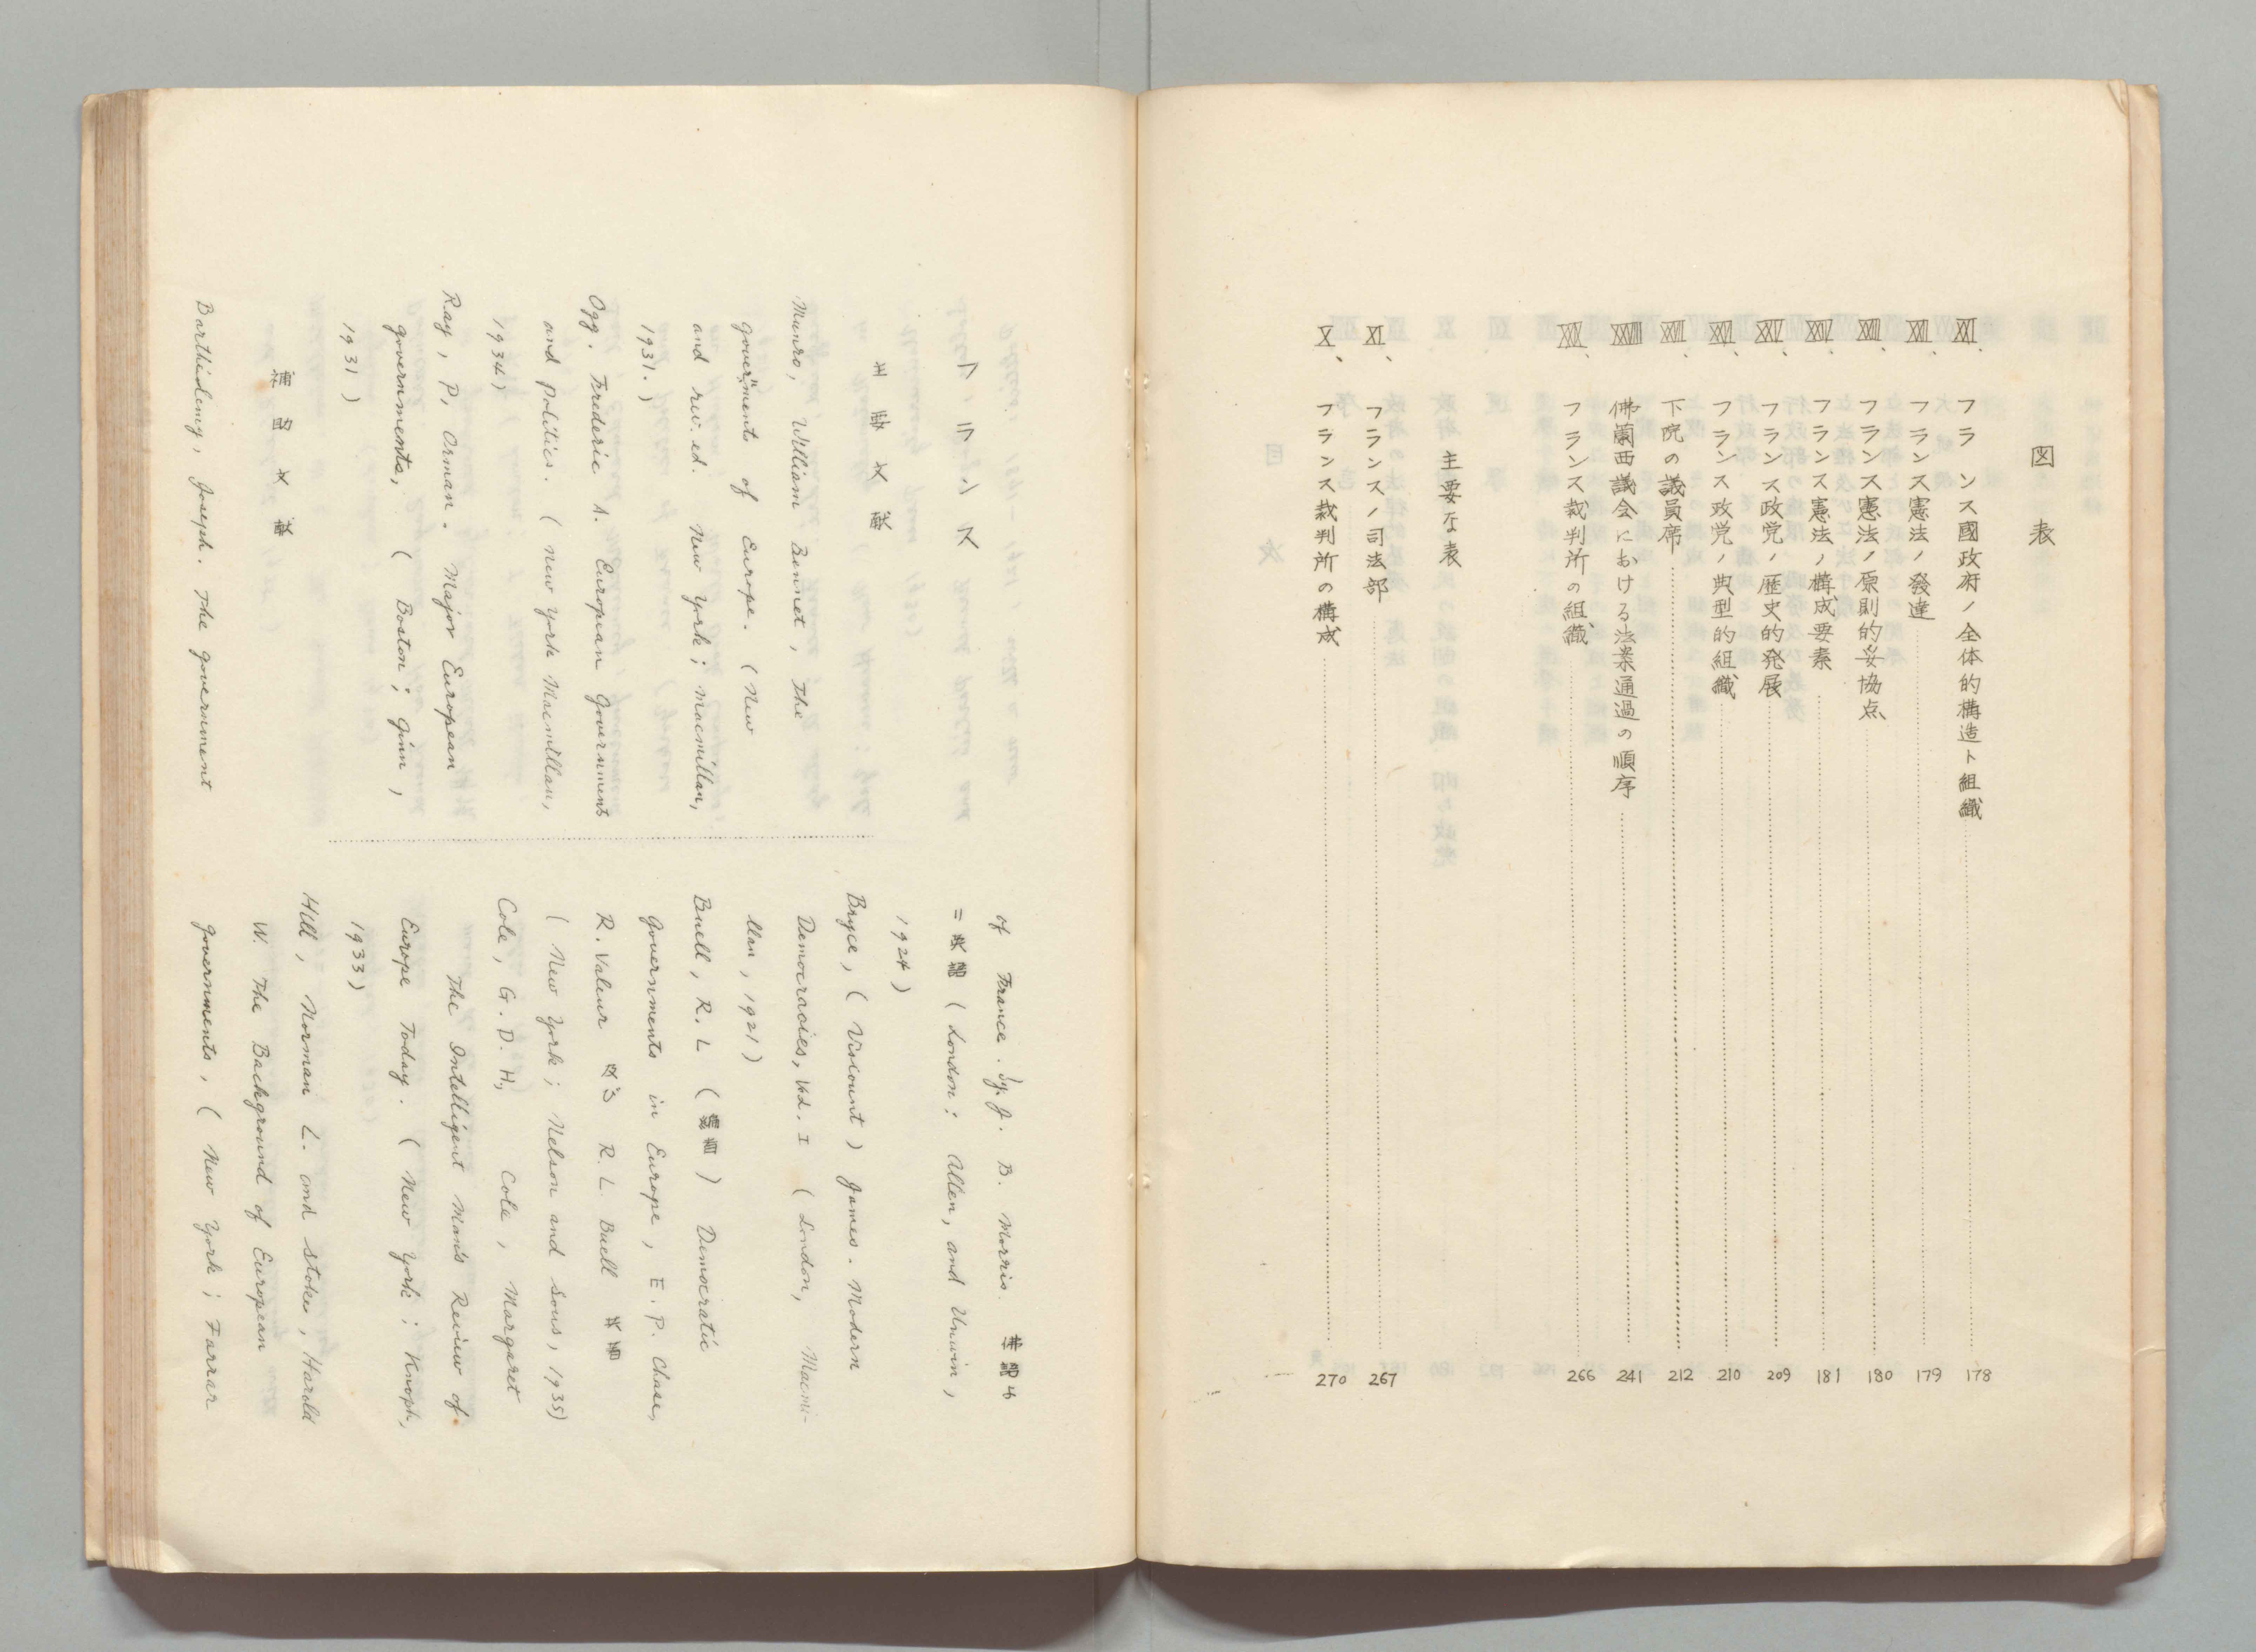 図表
XXI、フランス國政府ノ全体的構造ト組織 178
XXII、フランス憲法ノ發達 179
XXIII、フランス憲法ノ原則的妥協点 180
XXIV、フランス憲法ノ構成要素 181
XXV、フランス政党ノ歴史的発展 209
XXVI、フランス政党ノ典型的組織 210
XXVII、下院の議員席 212
XXVIII、佛蘭西議会における法案通過の順序 241
XXIX、フランス裁判所の組織 266
主要な表
XI、フランスノ司法部 267
X、フランス裁判所の構成 270
フランス
主要文献
Munro, William Bennet, The
goverments of Europe. (New
and rev. ed. New York; Macmillan,
1931.)
Ogg. Frederic A. European Government
and Politics. (New York Macmillan,
1934)
Ray, P, Orman. Major European
governments, (Boston; Ginn,
1931)
補助文献
Barthidemy, Joseph. The government
of France. by. J. B. Morris. 佛語カ
ニ英語 (London: Allen, and Unwin,
1924)
Bryce, (Viscount) James. Modern
Democraoies, Vol. I (London, Macmi-
llan, 1921)
Buell, R. L (編者) Democratic
governments in Europe, E. P. Chase,
R. Valeur 及ろ R. L. Buell 共著
(New York; Nelson and Sons, 1935)
Cole, G. D. H, Cole, Margaret
The Intelligent Man's Review of
Europe Today. (New York; Knoph,
1933)
Hill, Norman L. and Stoke, Harold
W. The Background of European
governments, (New York; Farrar